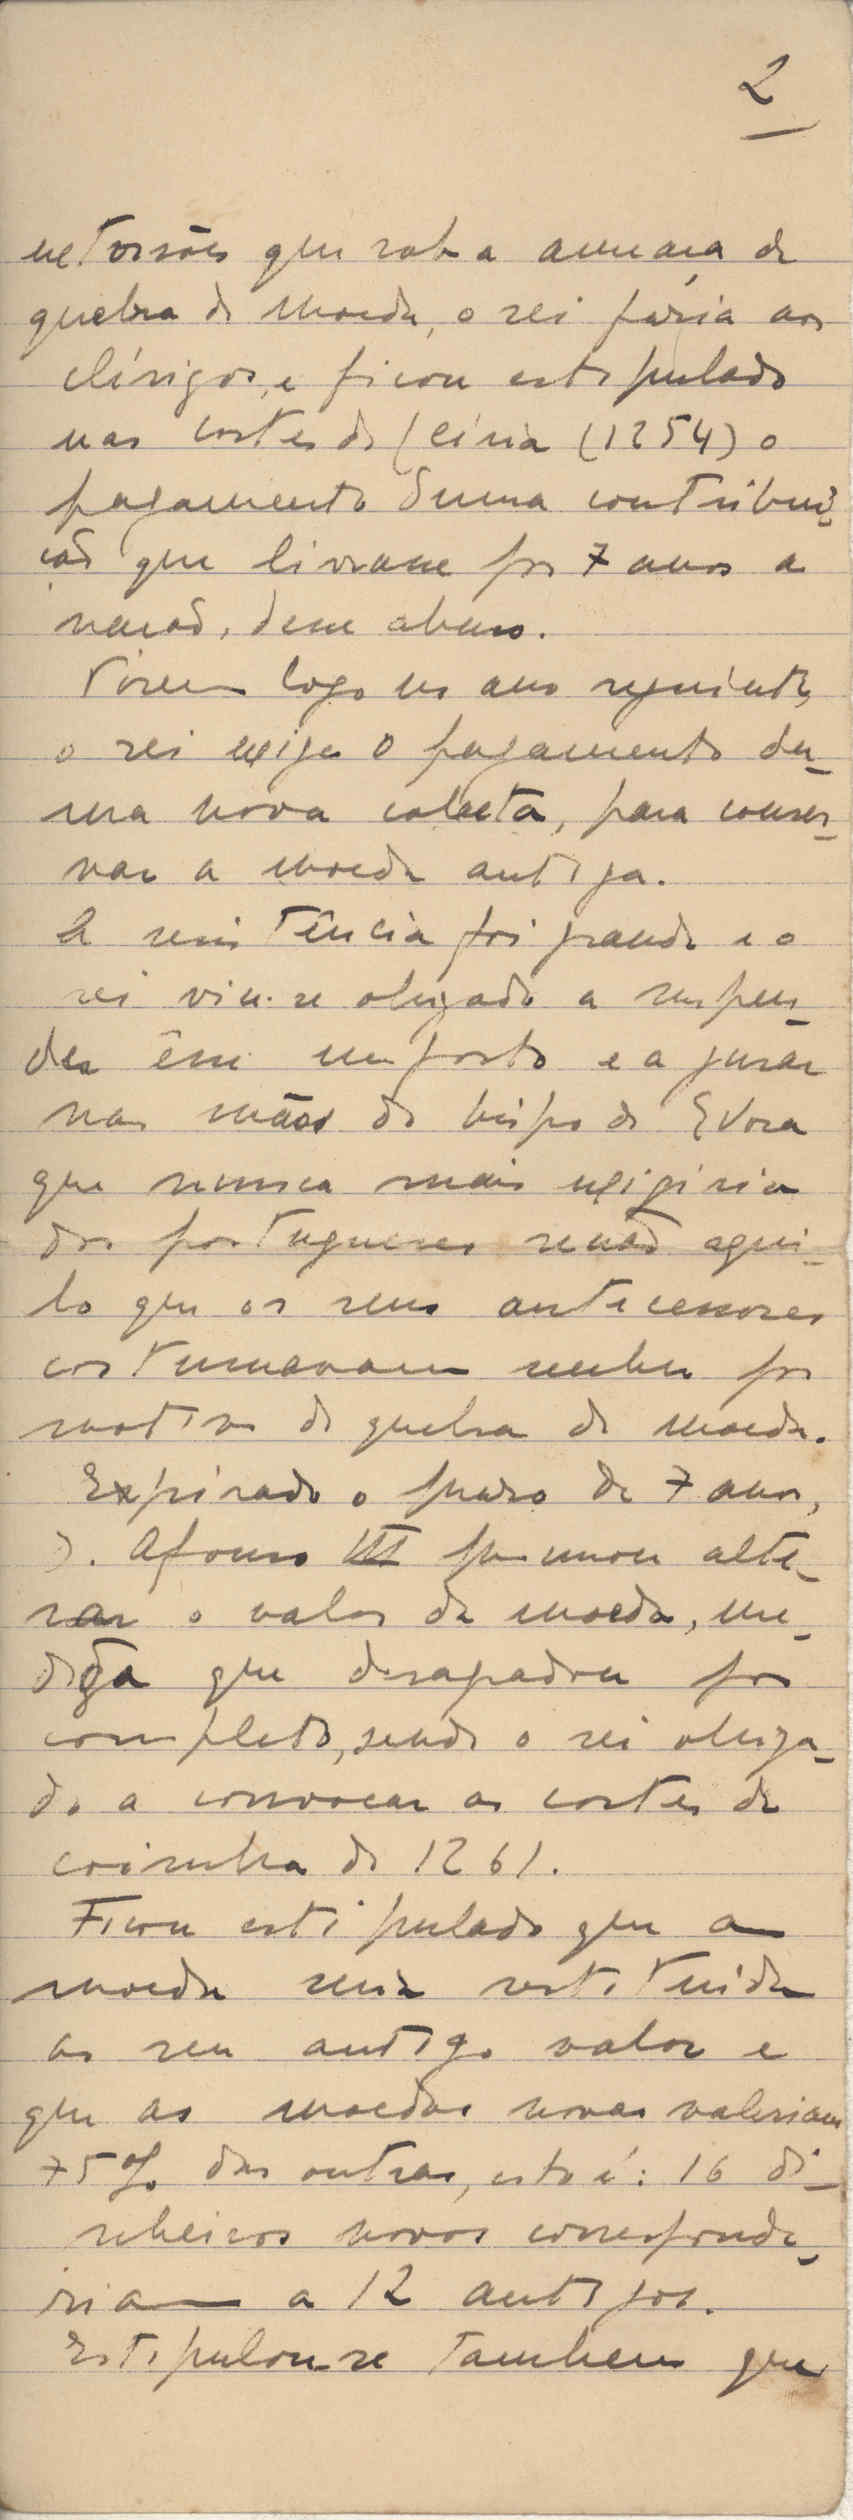 2
extorsões que sob a ameaça de
quebra de moeda, o rei faria aos
clérigos, e ficou estipulado
nas cortes de Leiria (1254) o
pagamento duma contribui-
ção que livrasse por 7 anos a
nação, desse abuso.
Porem logo no ano seguinte,
o rei exige o pagamento du-
ma nova colecta, para conser-
var a moeda antiga.
A resistência foi grande e o
rei viu-se obrigado a suspen-
der êsse imposto e a jurar
nas mãos do bispo de Evora
que nunca mais exigiria
dos portugueses senão aqui-
lo que os seus antecessores
costumavam receber por
motivo de quebra de moeda.
Expirado o prazo de 7 anos,
D. Afonso III alte-
rar o valor da moeda, me-
dida que desagradou por
completo, sendo o rei obriga-
do a convocar as cortes de
coimbra de 1261.
Ficou estipulado que a
moeda seria restituida
ao seu antigo valor e
que as moedas novas valeriam
75% das outras, isto é: 16 di-
nheiros novos corresponde-
riam a 12 antigos.
Estipulou-se tambem que